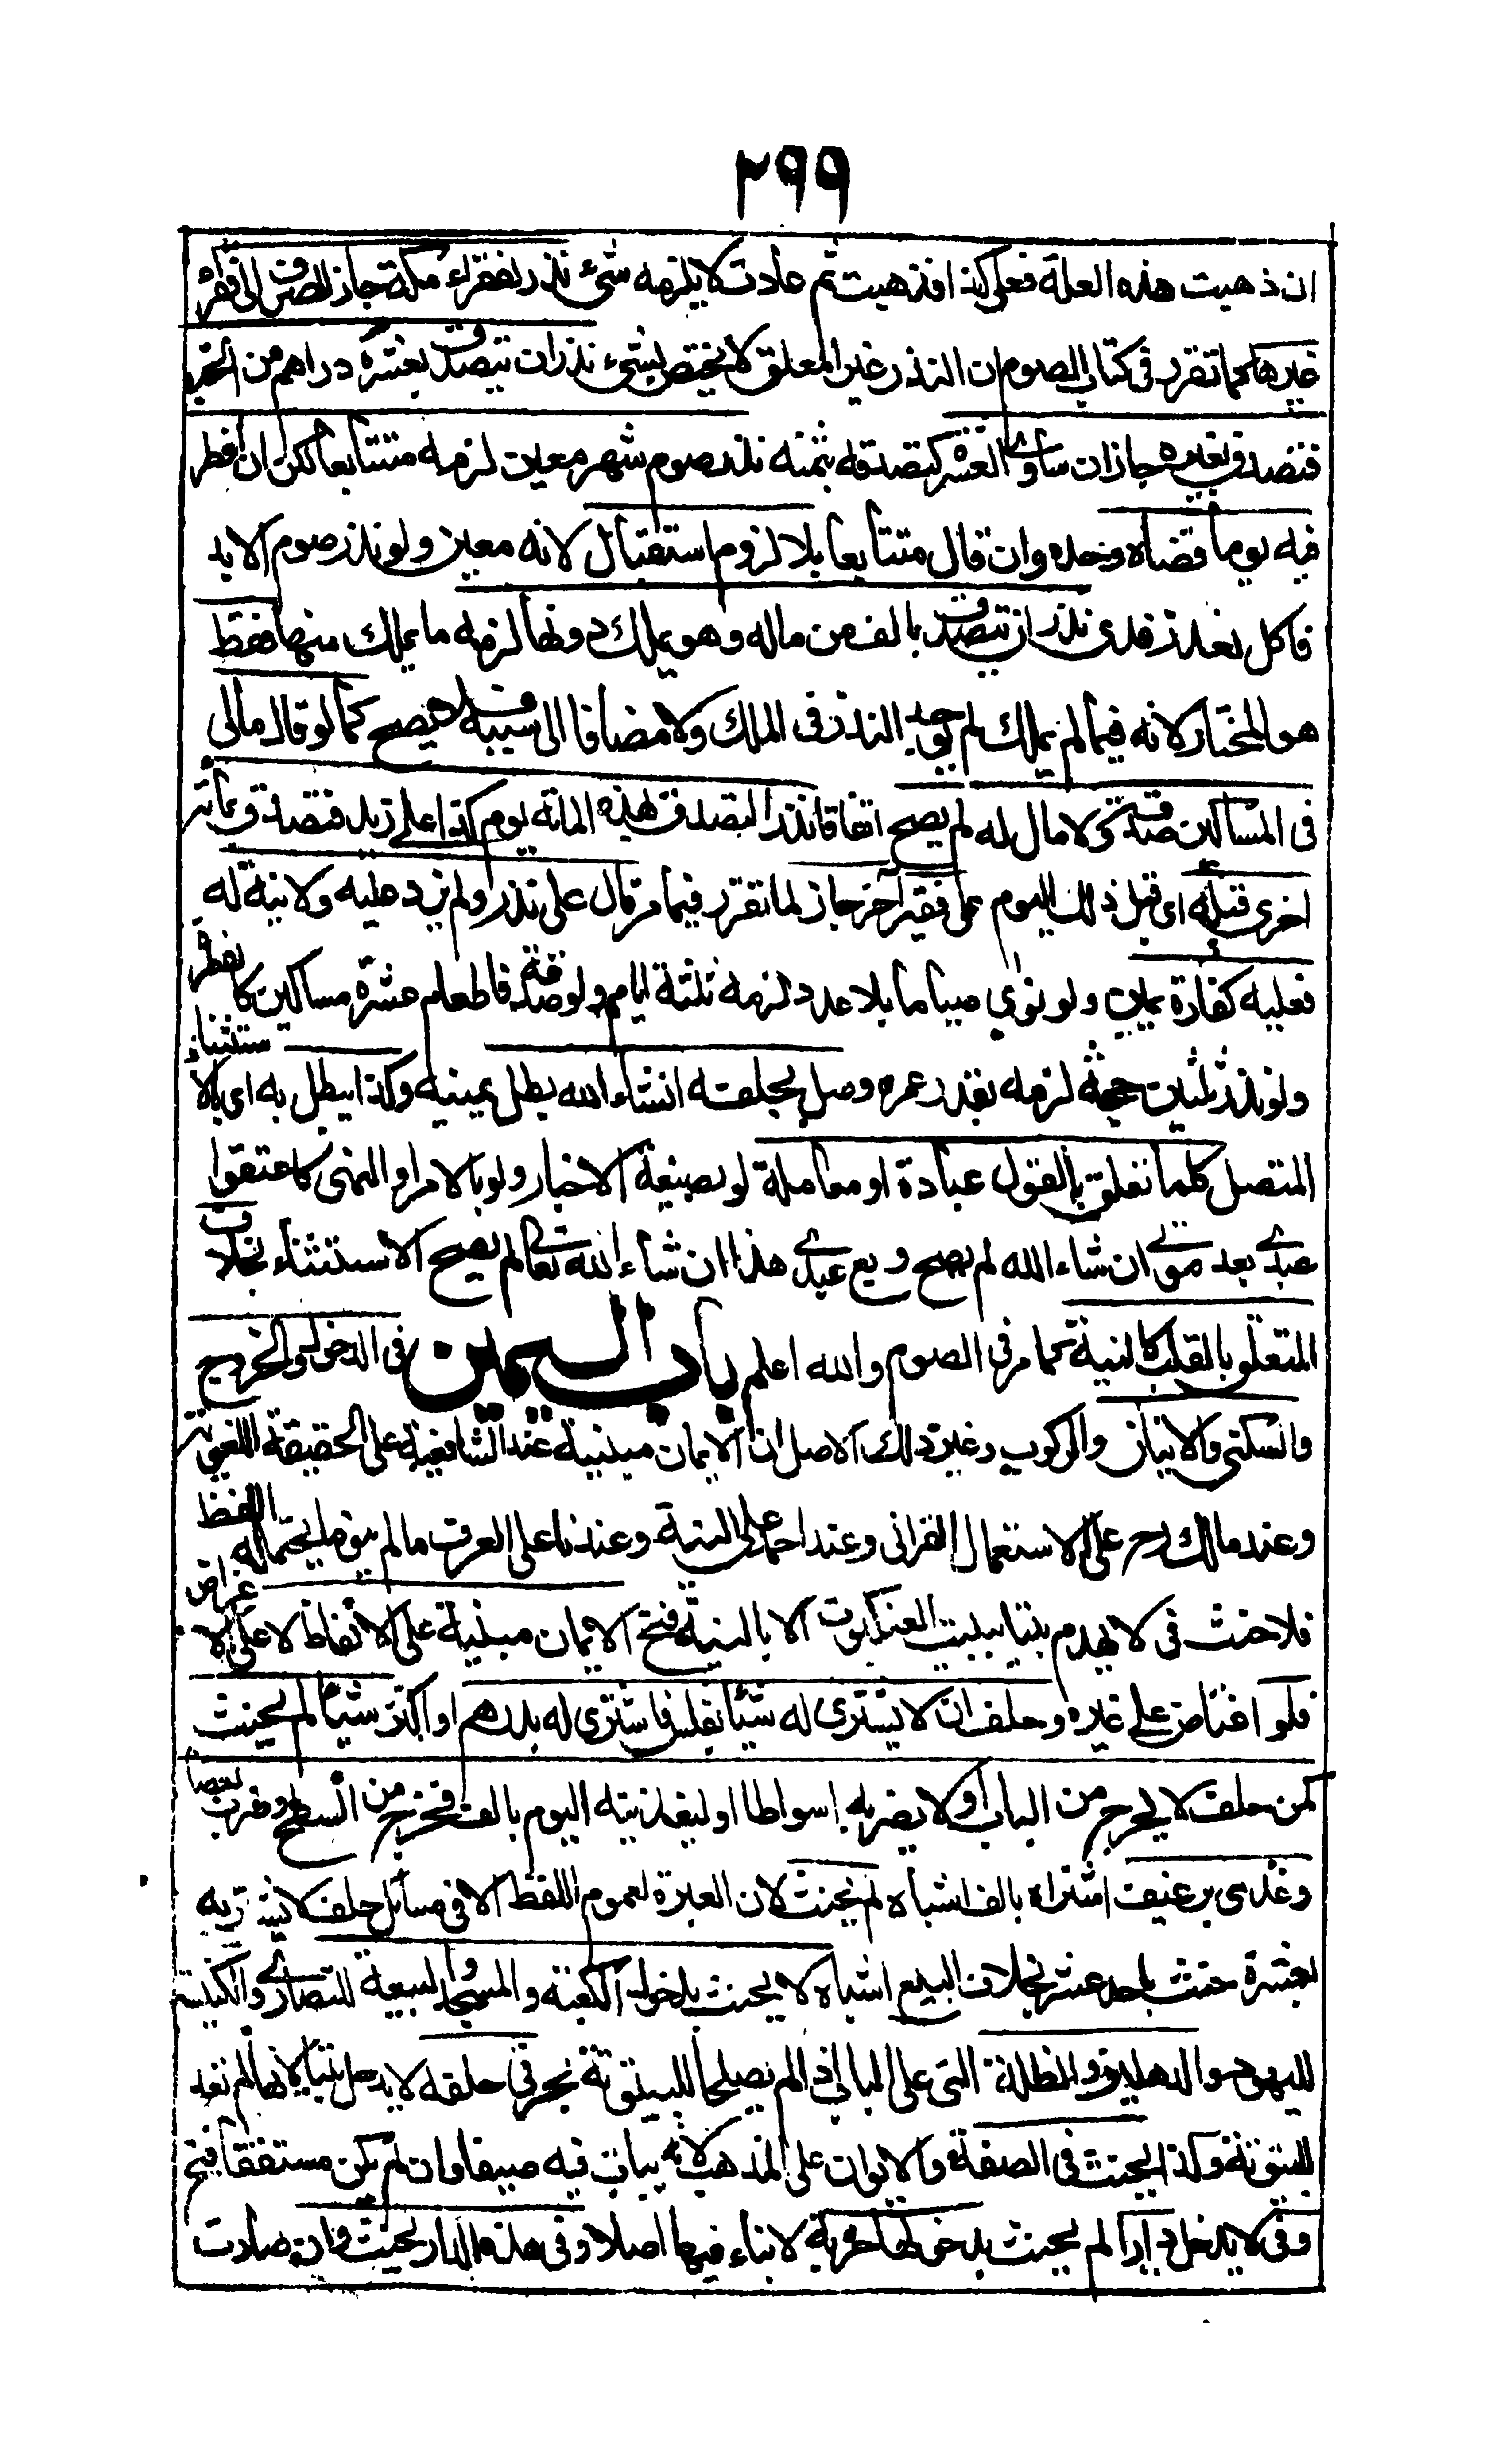 ٢٩٩
ان ذهبت هذه العلة فعلى كذا فذهبت ثم عادت لا يلزمه شئ نذر لفقراء مكة جاز الصرف الى فقراء
غيرها كما تقرر فى كتاب الصوم ان النذر غير المعلق لا يختص بشئ نذر ان يتصدق بعشرة دراهم من الخبز
فتصدق بغيره جاز ان ساوى العشر كتصدقه بثمنه نذر صوم شهر معين لزمه متتابعا لكن ان افطر
فيه يوما قضاه وحده وان قال متتابعا بلا لزوم استقبال لانه معين ولو نذر صوم الابد
فاكل بعذر فدى نذر ان يتصدق بالف من ماله وهو يملك دونها لزمه ما يملك منها فقط
هو المختار لانه فيما لم يملك لم يوجد النذر فى الملك ولا مضافا الى سببه فلا يصح كما لو قال مالى
فى المساكين صدقة ولا مال له لم يصح اتفاقا نذر التصدق بهذه المائة يوم كذا على زيد فتصدق بمائة
اخرى قبله اى قبل ذلك اليوم على فقير آخر جاز لما تقرر فيما مر قال على نذر ولم يزد عليه ولا نية له
فعليه كفارة يمين ولو نوى صياما بلا عدد لزمه ثلثة ايام ولو صدقة فاطعام عشرة مساكين كالفطرة
ولو نذر ثلثين حجة لزمه بقدر عمره وصل بحلفه انشاء الله بطل يمينه وكذا يبطل به اى بالاستثناء
المتصل كلما تعلق بالقول عبادة او معاملة لو بصيغة الاخبار ولو بالامر او النهى كاعتقوا
عبدى بعد موتى ان شاء الله لم يصح وبع عبدى هذا ان شاء الله تعالى لم يصح الاستثناء بخلاف
المتعلق بالقلب كالنية كما مر فى الصوم والله اعلم باب اليمين فى الدخول والخروج
والسكنى والاتيان والركوب وغير ذلك الاصل ان الايمان مبنية عند الشافعية على الحقيقة اللغوية
وعند مالك رح على الاستعمال القرانى وعند احمد على النية وعندنا على العرف ما لم ينو ما يحتمله اللفظ
فلا حنث فى لا يهدم بيتا ببيت العنكبوت الا بالنية فتح الايمان مبنية على الالفاظ لا على الاغراض
فلو اغتاض على غيره وحلف ان لا يشترى له شيئا بفلس فاشترى له بدرهم او اكثر شيئا لم يحنث
كمن حلف لا يخرج من الباب او لا يضربه اسواطا او ليغدينه اليوم بالف فخرج من السطح وضرب بعصا
وغدى برغيف اشتراه بالف اشباه لم يحنث لان العبرة لعموم اللفظ الا فى مسائل حلف لا يشتريه
بعشرة حنث باحد عشر بخلاف البيع اشباه لا يحنث بدخول الكعبة والمسجد والبيعة للنصارى والكنيسة
لليهود والدهليز والظلة التى على الباب اذا لم يصلحا للبيتوتة بحر فى حلفه لا يدخل بيتا لانها لم تعد
للبيتوتة وكذا يحنث فى الصفة والايوان على المذهب لانه يبات فيه صيفا وان لم يكن مسقفا فتح
وفى لا يدخل دارا لم يحنث بدخولها خربة لا بناء فيها اصلا وفى هذه الدار يحنث وان صارت